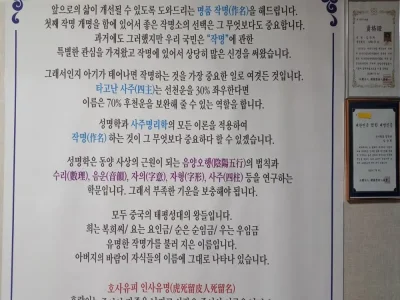 앞으로의 삶이 개선될 수 있도록 도와드리는 명품 작명(作名)을 해드립니다.
첫째 작명 개명을 함에 있어서 좋은 작명소의 선택은 그 무엇보다도 중요합니다.
과거에도 그러했지만 우리 국민은 "작명"에 관한
특별한 관심을 가져왔고 작명에 있어서 상당히 많은 신경을 써왔습니다.
그래서인지 아기가 태어나면 작명하는 것을 가장 중요한 일로 여겼든 것입니다.
타고난 사주(四主)는 선천운을 30% 좌우한다면
이름은 70% 후천운을 보완해 줄 수 있는 역할을 합니다.
성명학과 사주명리학의 모든 이론을 적용하여
작명(作名) 하는 것이 그 무엇보다 중요하다 할 수 있겠습니다.
성명학은 동양 사상의 근원이 되는 음양오행(陰陽五行)의 법칙과
수리(數理), 음운(音韻), 자의(字意), 자형(字形), 사주(四柱) 등을 연구하는
학문입니다. 그래서 부족한 기운을 보충해야 됩니다.
모두 중국의 태평성대의 왕들입니다.
희는 복희씨/ 요는 요인금/ 순은 순임금/ 우는 우임금
유명한 작명가를 불러 지은 이름입니다.
아버지의 바람이 자식들의 이름에 그대로 나타나 있습니다.
호사유피 인사유명(虎死留皮人死留名)